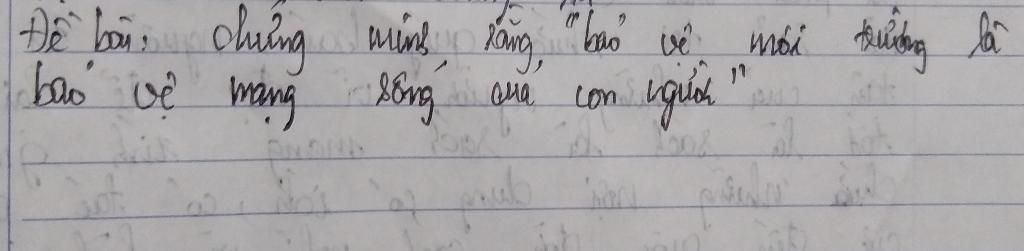 Đề bài: chứng minh rằng "bảo vệ môi trường là
bảo vệ mạng sống của con người"